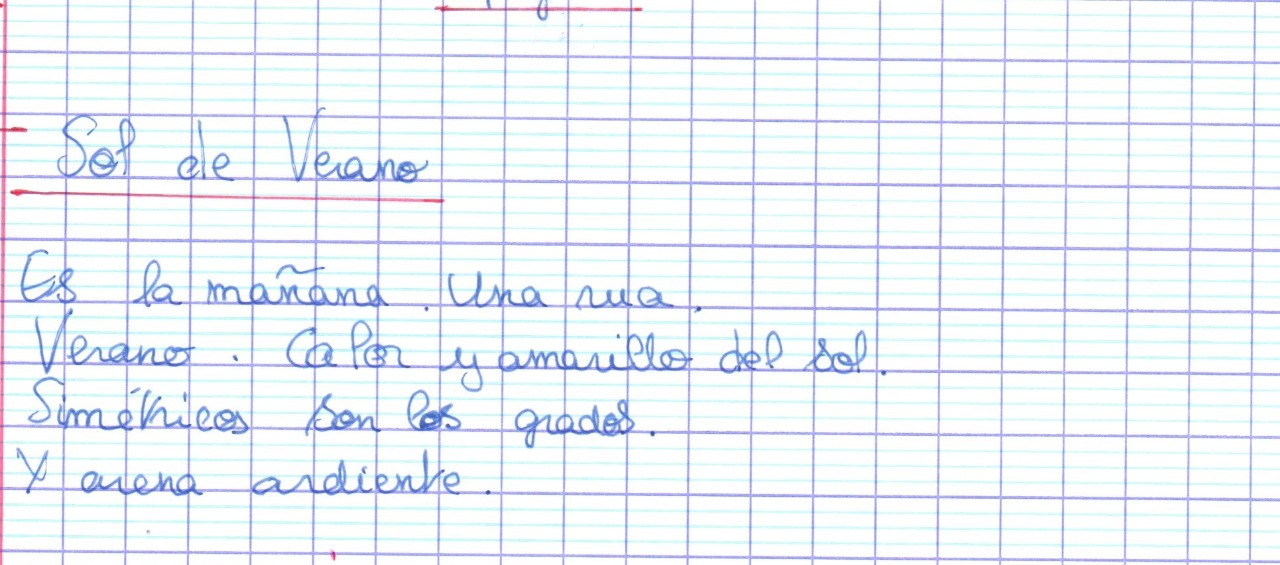 Sol de Verano
Es la mañana. Una rua.
Verano. Calor y amarillo del sol.
Simétricos son los grados.
Y arena ardiente.